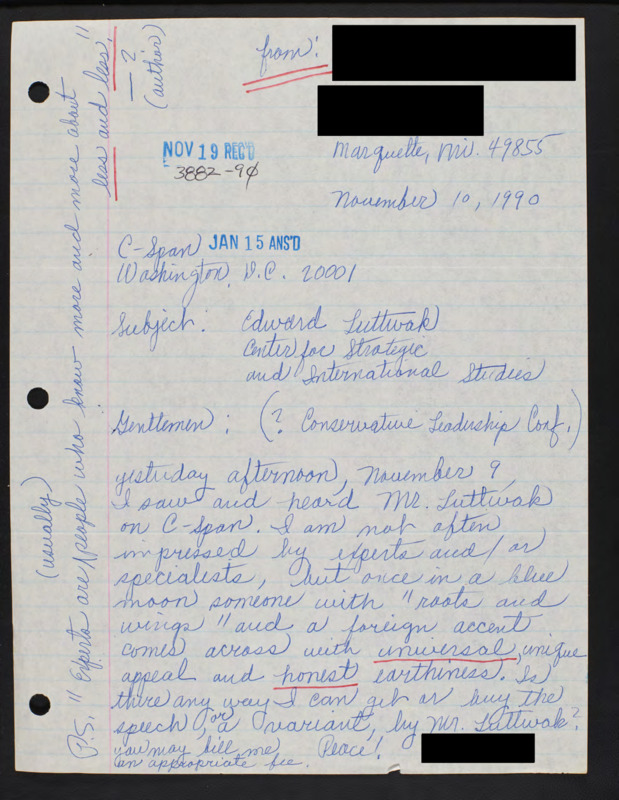 from:
NOV 19 REC'D
3882-90
Marquette, Mi. 49855
November 10, 1990
C-Span JAN 15 ANS'D
Washington, D.C. 20001
Subject: Edward Luttwak
Center for Strategic
and International Studies
Gentlemen: (? Conservative Leadership Conf.)
yesterday afternoon, November 9,
I saw and heard Mr. Luttwak
on C-Span. I am not often
impressed by experts and/or
specialists, but once in a blue
moon someone with "roots and
wings" and a foreign accent
comes across with universal, unique
appeal and honest earthiness. Is
there any way I can get or buy the
speech, or a variant, by Mr. Luttwak?
you may bill me Peace!
an appropriate fee.
P.S. "Experts are (usually) people who know more and more about
less and less."
— ?
(author)